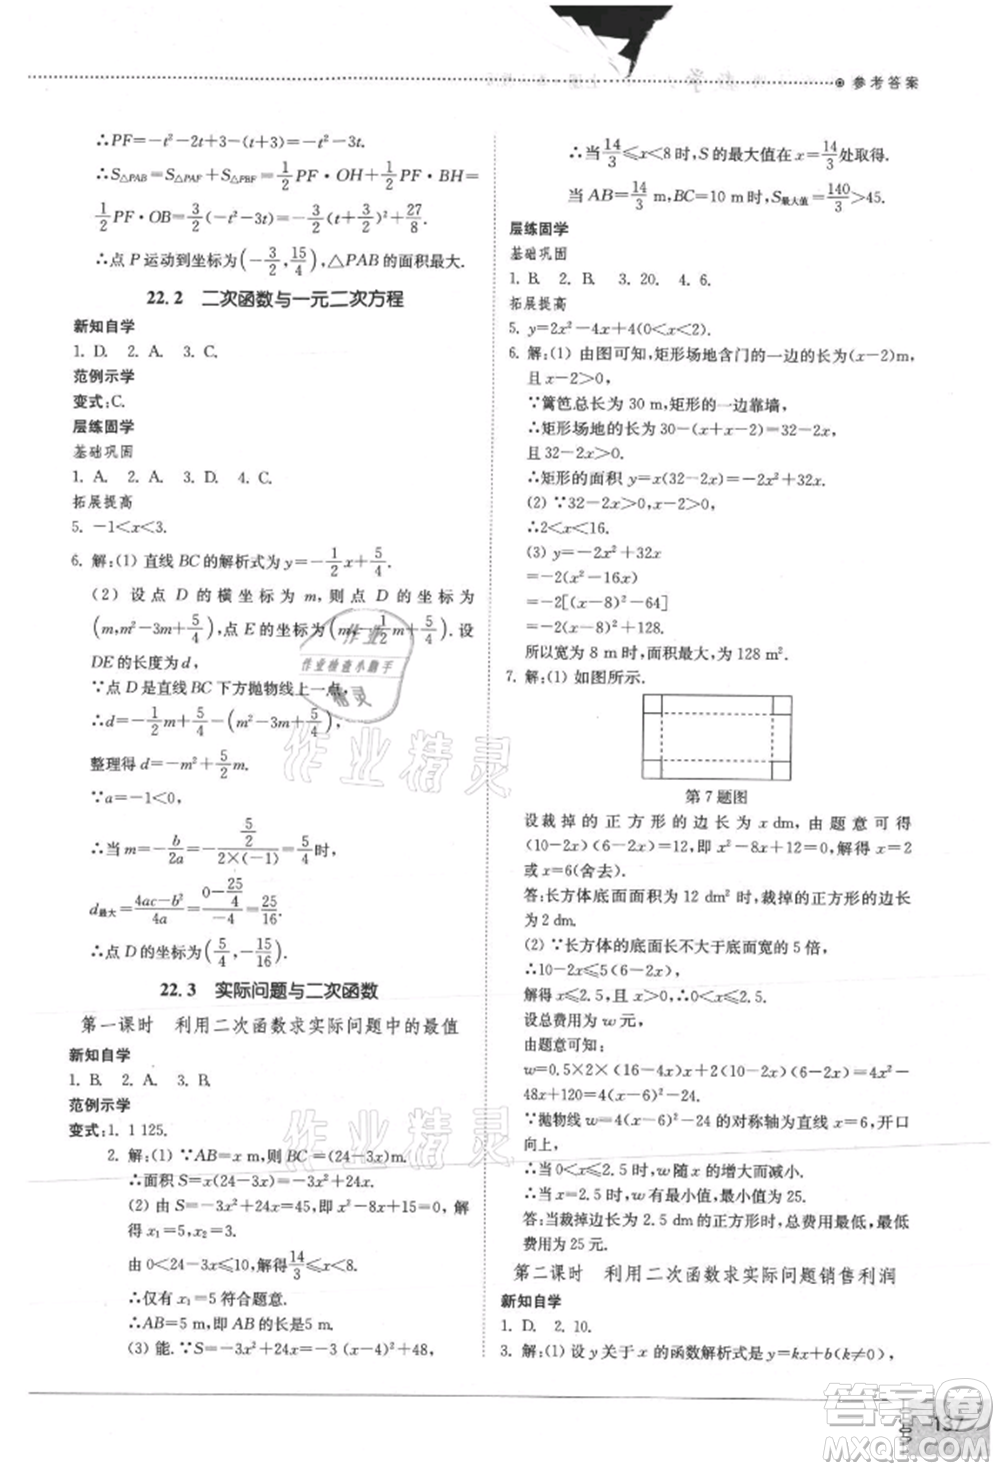 参考答案
∴PF=－t²－2t＋3－(t＋3)=－t²－3t.
∴S△PAB=S△PAF＋S△PBF=1/2 PF·OH＋1/2 PF·BH=
1/2 PF·OB=3/2(－t²－3t)=－3/2(t＋3/2)²＋27/8.
∴点 P 运动到坐标为(－3/2, 15/4),△PAB 的面积最大.
22.2 二次函数与一元二次方程
新知自学
1. D. 2. A. 3. C.
范例示学
变式:C.
层练固学
基础巩固
1. A. 2. A. 3. D. 4. C.
拓展提高
5. －1<x<3.
6. 解:(1) 直线 BC 的解析式为 y=－1/2 x＋5/4.
(2) 设点 D 的横坐标为 m,则点 D 的坐标为
(m,m²－3m＋5/4),点 E 的坐标为(m,－1/2 m＋5/4). 设
DE 的长度为 d.
∵点 D 是直线 BC 下方抛物线上一点,
∴d=－1/2 m＋5/4－(m²－3m＋5/4),
整理得 d=－m²＋5/2 m.
∵a=－1<0,
∴当 m=－b/2a=－(5/2)/(2×(－1))=5/4时,
d最大=(4ac－b²)/4a=(0－25/4)/－4=25/16.
∴点 D 的坐标为(5/4,－15/16).
22.3 实际问题与二次函数
第一课时 利用二次函数求实际问题中的最值
新知自学
1. B. 2. A. 3. B.
范例示学
变式:1. 1 125.
2. 解:(1)∵AB=x m,则 BC=(24－3x)m.
∴面积 S=x(24－3x)=－3x²＋24x.
(2) 由 S=－3x²＋24x=45,即 x²－8x＋15=0.
解得 x₁=5,x₂=3.
由 0<24－3x≤10,得14/3≤x<8.
∴仅有 x₁=5 符合题意.
∴AB=5 m,即 AB 的长是5 m.
(3) 能.∵S=－3x²＋24x=－3(x－4)²＋48,
∴当14/3≤x<8 时,S 的最大值在 x=14/3处取得.
当 AB=14/3 m,BC=10 m 时,S最大值=140/3>45.
层练固学
基础巩固
1. B. 2. B. 3. 20. 4. 6.
拓展提高
5. y=2x²－4x＋4(0<x<2).
6. 解:(1) 由图可知,矩形场地含门的一边的长为(x－2)m,
且 x－2>0,
∵篱笆总长为 30 m,矩形的一边靠墙,
∴矩形场地的长为 30－(x＋x－2)=32－2x,
且32－2x>0.
∴矩形的面积 y=x(32－2x)=－2x²＋32x.
(2) ∵32－2x>0,x－2>0,
∴2<x<16.
(3) y=－2x²＋32x
=－2(x²－16x)
=－2[(x－8)²－64]
=－2(x－8)²＋128.
所以宽为 8 m 时,面积最大,为 128 m².
7. 解:(1) 如图所示.
第 7 题图
设裁掉的正方形的边长为 x dm,由题意可得
(10－2x)(6－2x)=12,即 x²－8x＋12=0,解得 x=2
或 x=6(舍去).
答:长方体底面面积为 12 dm² 时,裁掉的正方形的边长
为 2 dm.
(2) ∵长方体的底面长不大于底面宽的 5 倍,
∴10－2x≤5(6－2x),
解得 x≤2.5,∴0<x≤2.5.
设总费用为 w 元,
由题意可知:
w=0.5×2×x(16－4x)＋2(10－2x)(6－2x)=4x²－
48x＋120=4(x－6)²－24.
∵抛物线 w=4(x－6)²－24 的对称轴为直线 x=6,开口
向上,
∴当 0<x≤2.5 时,w 随 x 的增大而减小.
∴当 x=2.5 时,w 有最小值,最小值为 25.
答:当裁掉边长为 2.5 dm的正方形时,总费用最低,最低
费用为 25 元.
第二课时 利用二次函数求实际问题销售利润
新知自学
1. D. 2. 10.
3. 解:(1) 设 y 关于 x 的函数解析式是 y=kx＋b(k≠0),
137
作业
作业检查小助手
精灵
作业精灵
作业精灵
答案圈
MXQE.COM